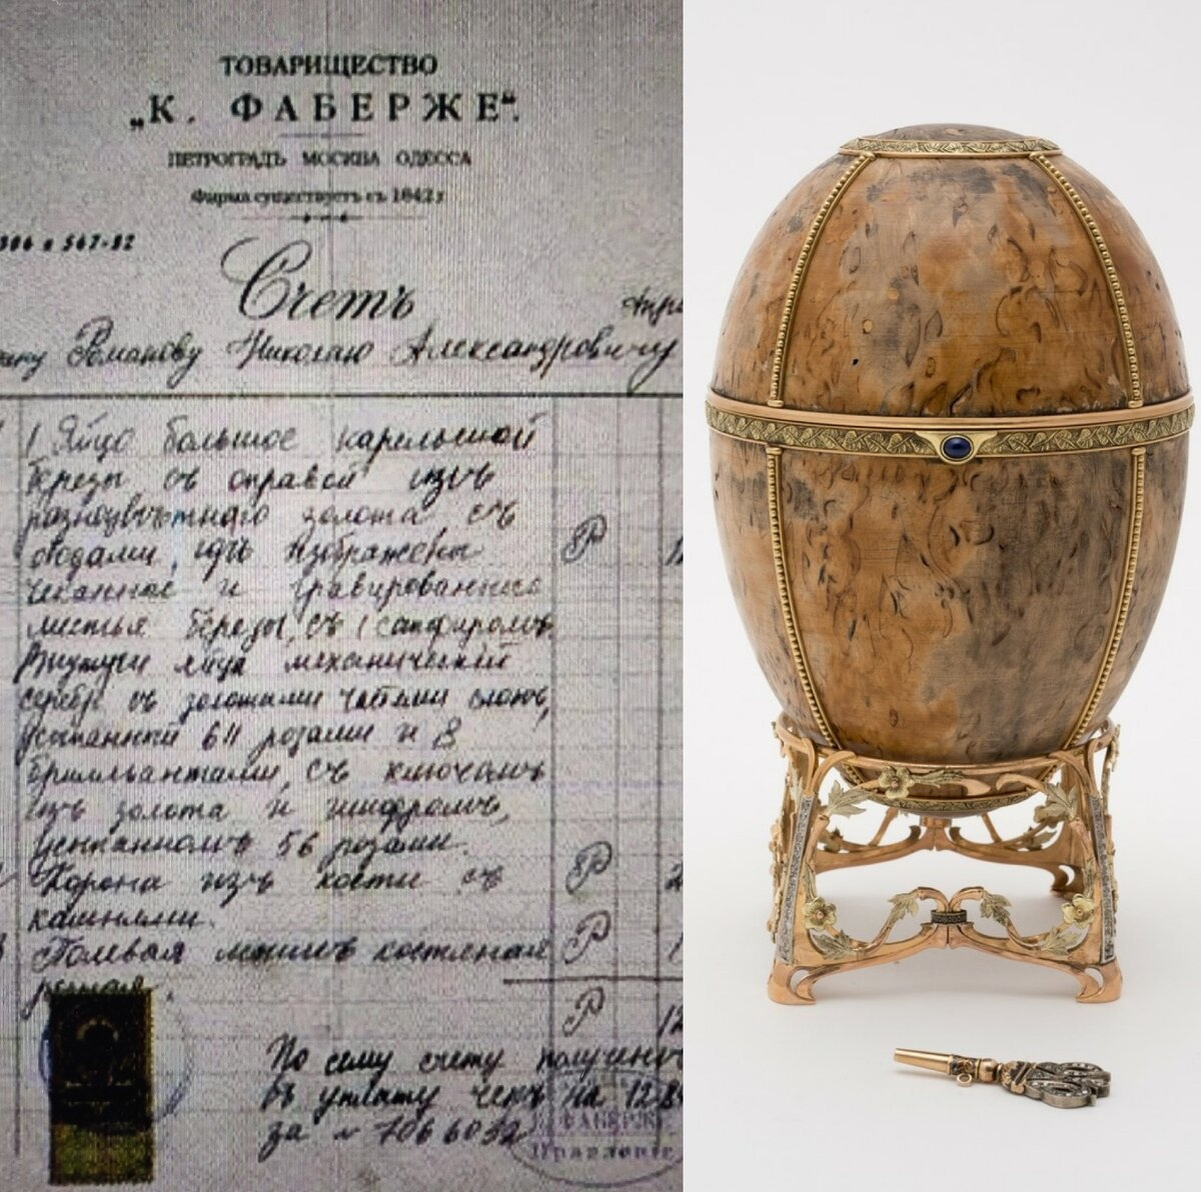 ТОВАРИЩЕСТВО
„К. ФАБЕРЖЕ“.
ПЕТРОГРАДЪ МОСКВА ОДЕССА
Фирма существуетъ съ 1842 г
306 и 567-82
Счетъ
Романову Николаю Александровичу
1 Яйцо большое карельской
березы съ оправой изъ
разноцвѣтнаго золота, съ
ободами, гдѣ изображены
чеканные и гравированные
листья березы, съ 1 сапфиромъ.
Внутри яйца механический
съ золотыми частями слонъ,
розами и 8
бриллиантами, съ ключомъ
изъ золота и шифромъ,
усыпанномъ 56 розами.
Р
Корона изъ кости съ
Р
камнями.
Полевая костяная
Р
Р
По сему счету получено
въ уплату чекъ на 12
за № 706 6032
ФАБЕРЖЕ
Правленіе